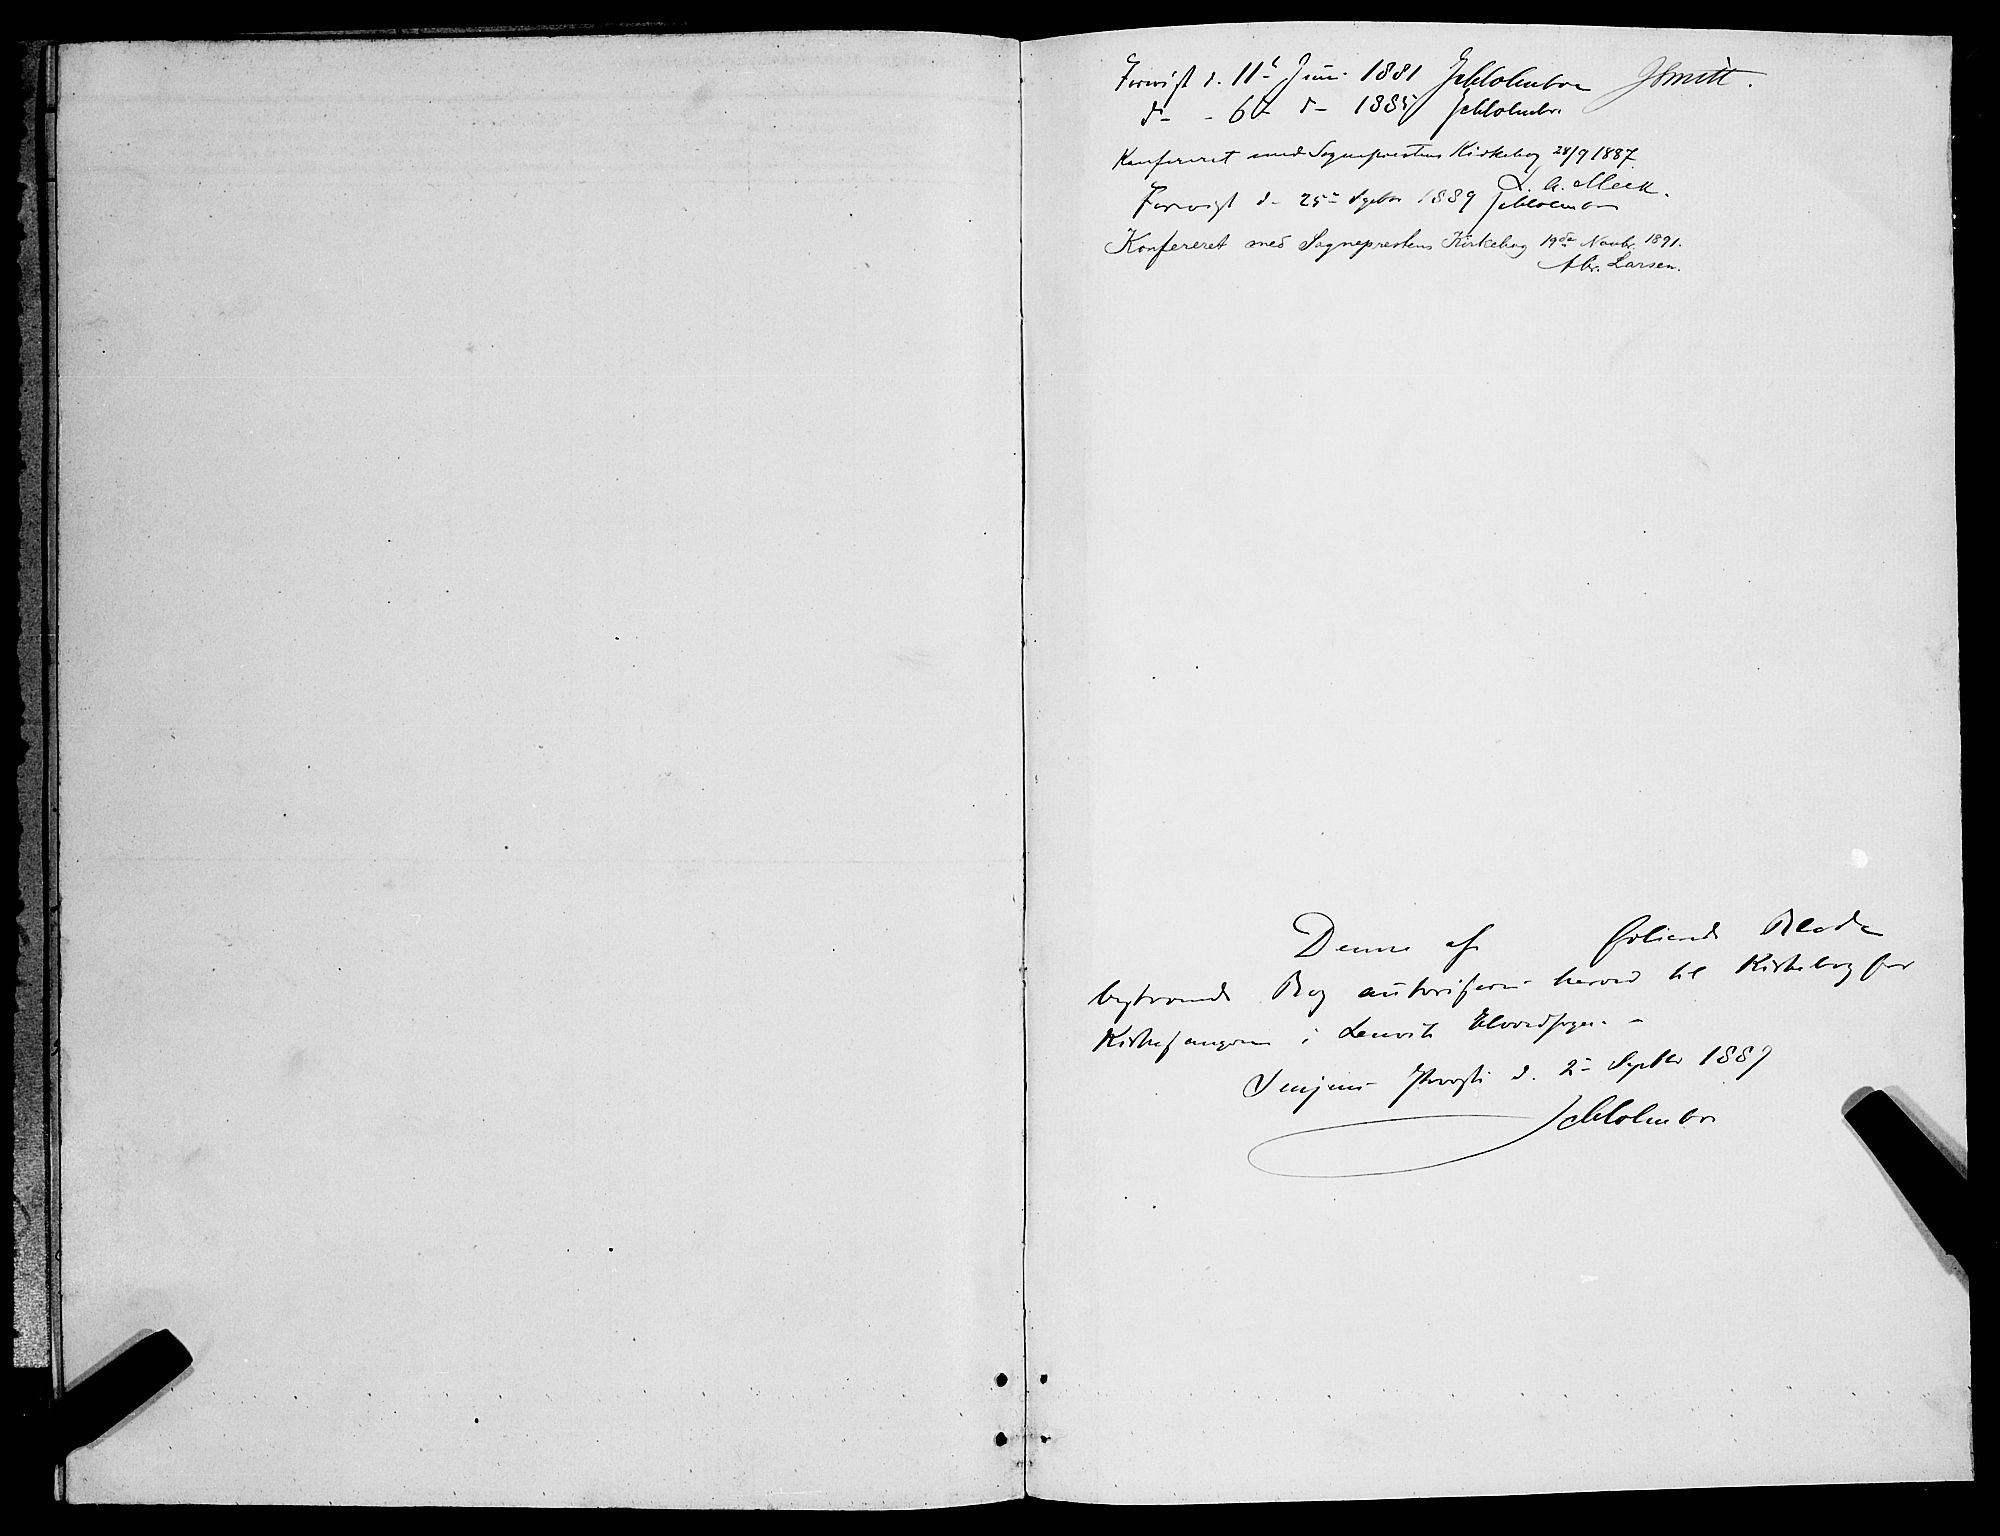 Forevist d. 11t Juni 1881 JCHolmboe JSmitt.
do - 6te do 1885 JCHolmboe
Konfereret med Sognepræstens Kirkebog 28/9 1887.
L. A. Meek.
Forevist d. 25de Septbr 1889 JCHolmboe
Konfereret med Sogneprestens Kirkebog 19de Novbr. 1891.
Abr. Larsen.
Denne af Folierede Blade
bestaaende Bog autoriseres herved til Kirkebog for
Kirkesangeren i Lenvik Hovedsogn. -
Senjens Provsti d. 2den Septbr 1889
JCHolmboe